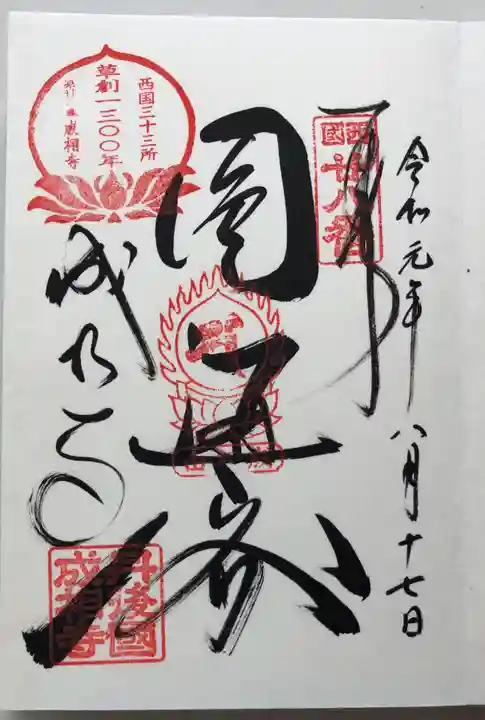 令和元年八月十七日
奉拝
西國廿八番
圓通閣
成相寺
西国三十三所
草創一三〇〇年
成相寺
丹後國
成相寺